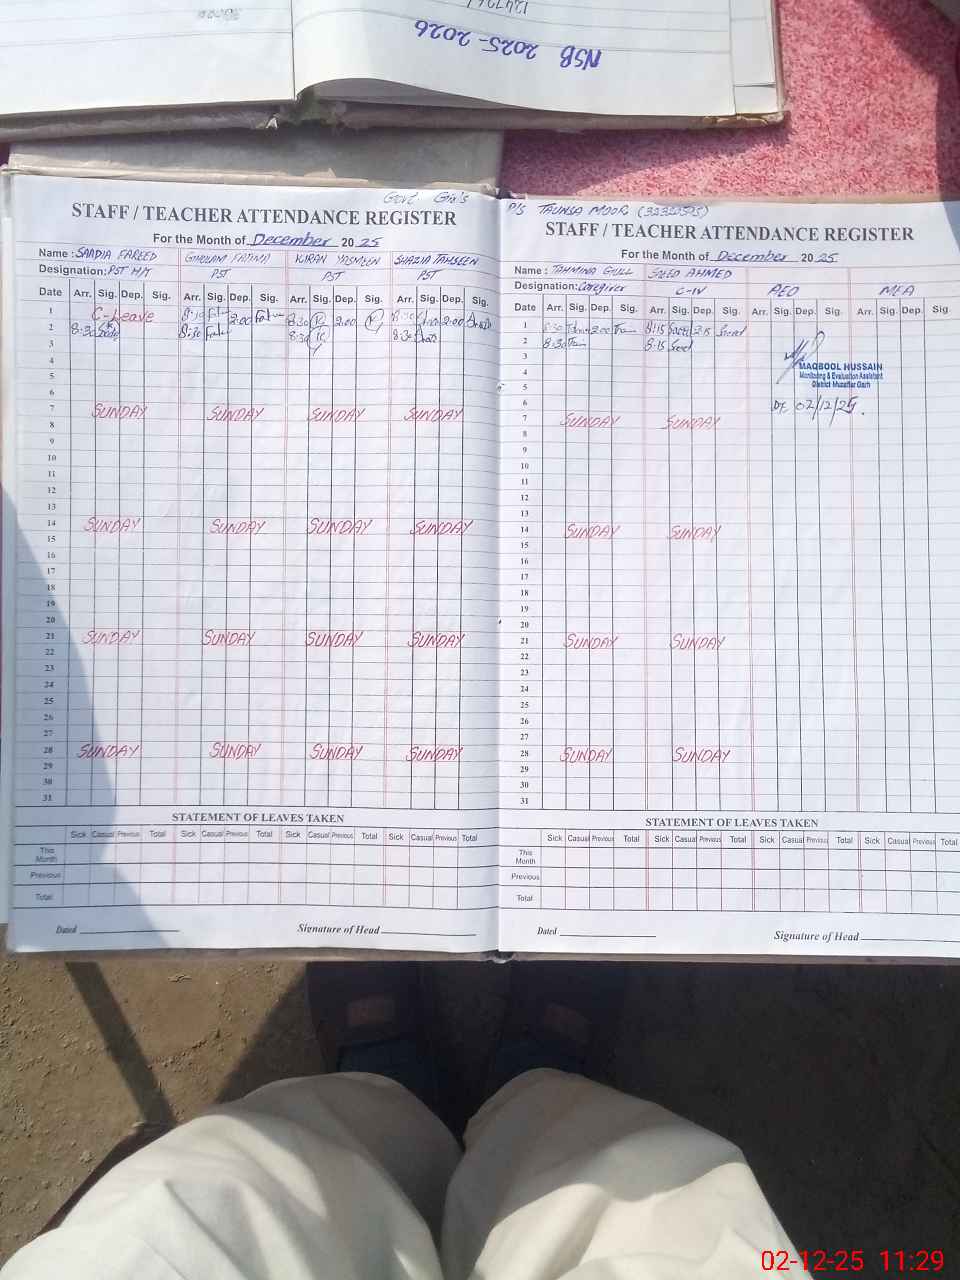 NSB 2025-2026
Govt. Girls
STAFF / TEACHER ATTENDANCE REGISTER
For the Month of December 20 25
Name : SAADIA FAREED GHULAM FATIMA KIRAN YASMEEN SHAZIA TAHSEEN
Designation: PST H/T PST PST PST
Date Arr. Sig. Dep. Sig. Arr. Sig. Dep. Sig. Arr. Sig. Dep. Sig. Arr. Sig. Dep. Sig.
1 C-Leave 8:30 2:00 8:30 2:00 8:30 2:00
2 8:30 8:30 8:30 8:30
3
4
5
6
7 SUNDAY SUNDAY SUNDAY SUNDAY
8
9
10
11
12
13
14 SUNDAY SUNDAY SUNDAY SUNDAY
15
16
17
18
19
20
21 SUNDAY SUNDAY SUNDAY SUNDAY
22
23
24
25
26
27
28 SUNDAY SUNDAY SUNDAY SUNDAY
29
30
31
STATEMENT OF LEAVES TAKEN
Sick Casual Previous Total Sick Casual Previous Total Sick Casual Previous Total Sick Casual Previous Total
This Month
Previous
Total
Dated Signature of Head
P/S TAUNSA MOOR
STAFF / TEACHER ATTENDANCE REGISTER
For the Month of December 20 25
Name : TAHMINA GULL SAEED AHMED
Designation: Caregiver C-IV AEO MEA
Date Arr. Sig. Dep. Sig. Arr. Sig. Dep. Sig. Arr. Sig. Dep. Sig. Arr. Sig. Dep. Sig.
1 8:30 2:00 8:15 2:15 Saeed
2 8:30 8:15 Saeed
3
4
5
6
7 SUNDAY SUNDAY
8
9
10
11
12
13
14 SUNDAY SUNDAY
15
16
17
18
19
20
21 SUNDAY SUNDAY
22
23
24
25
26
27
28 SUNDAY SUNDAY
29
30
31
MAQBOOL HUSSAIN
Monitoring & Evaluation Assistant
District Muzaffar Garh
Dt. 02/12/25.
STATEMENT OF LEAVES TAKEN
Sick Casual Previous Total Sick Casual Previous Total Sick Casual Previous Total Sick Casual Previous Total
This Month
Previous
Total
Dated Signature of Head
02-12-25 11:29